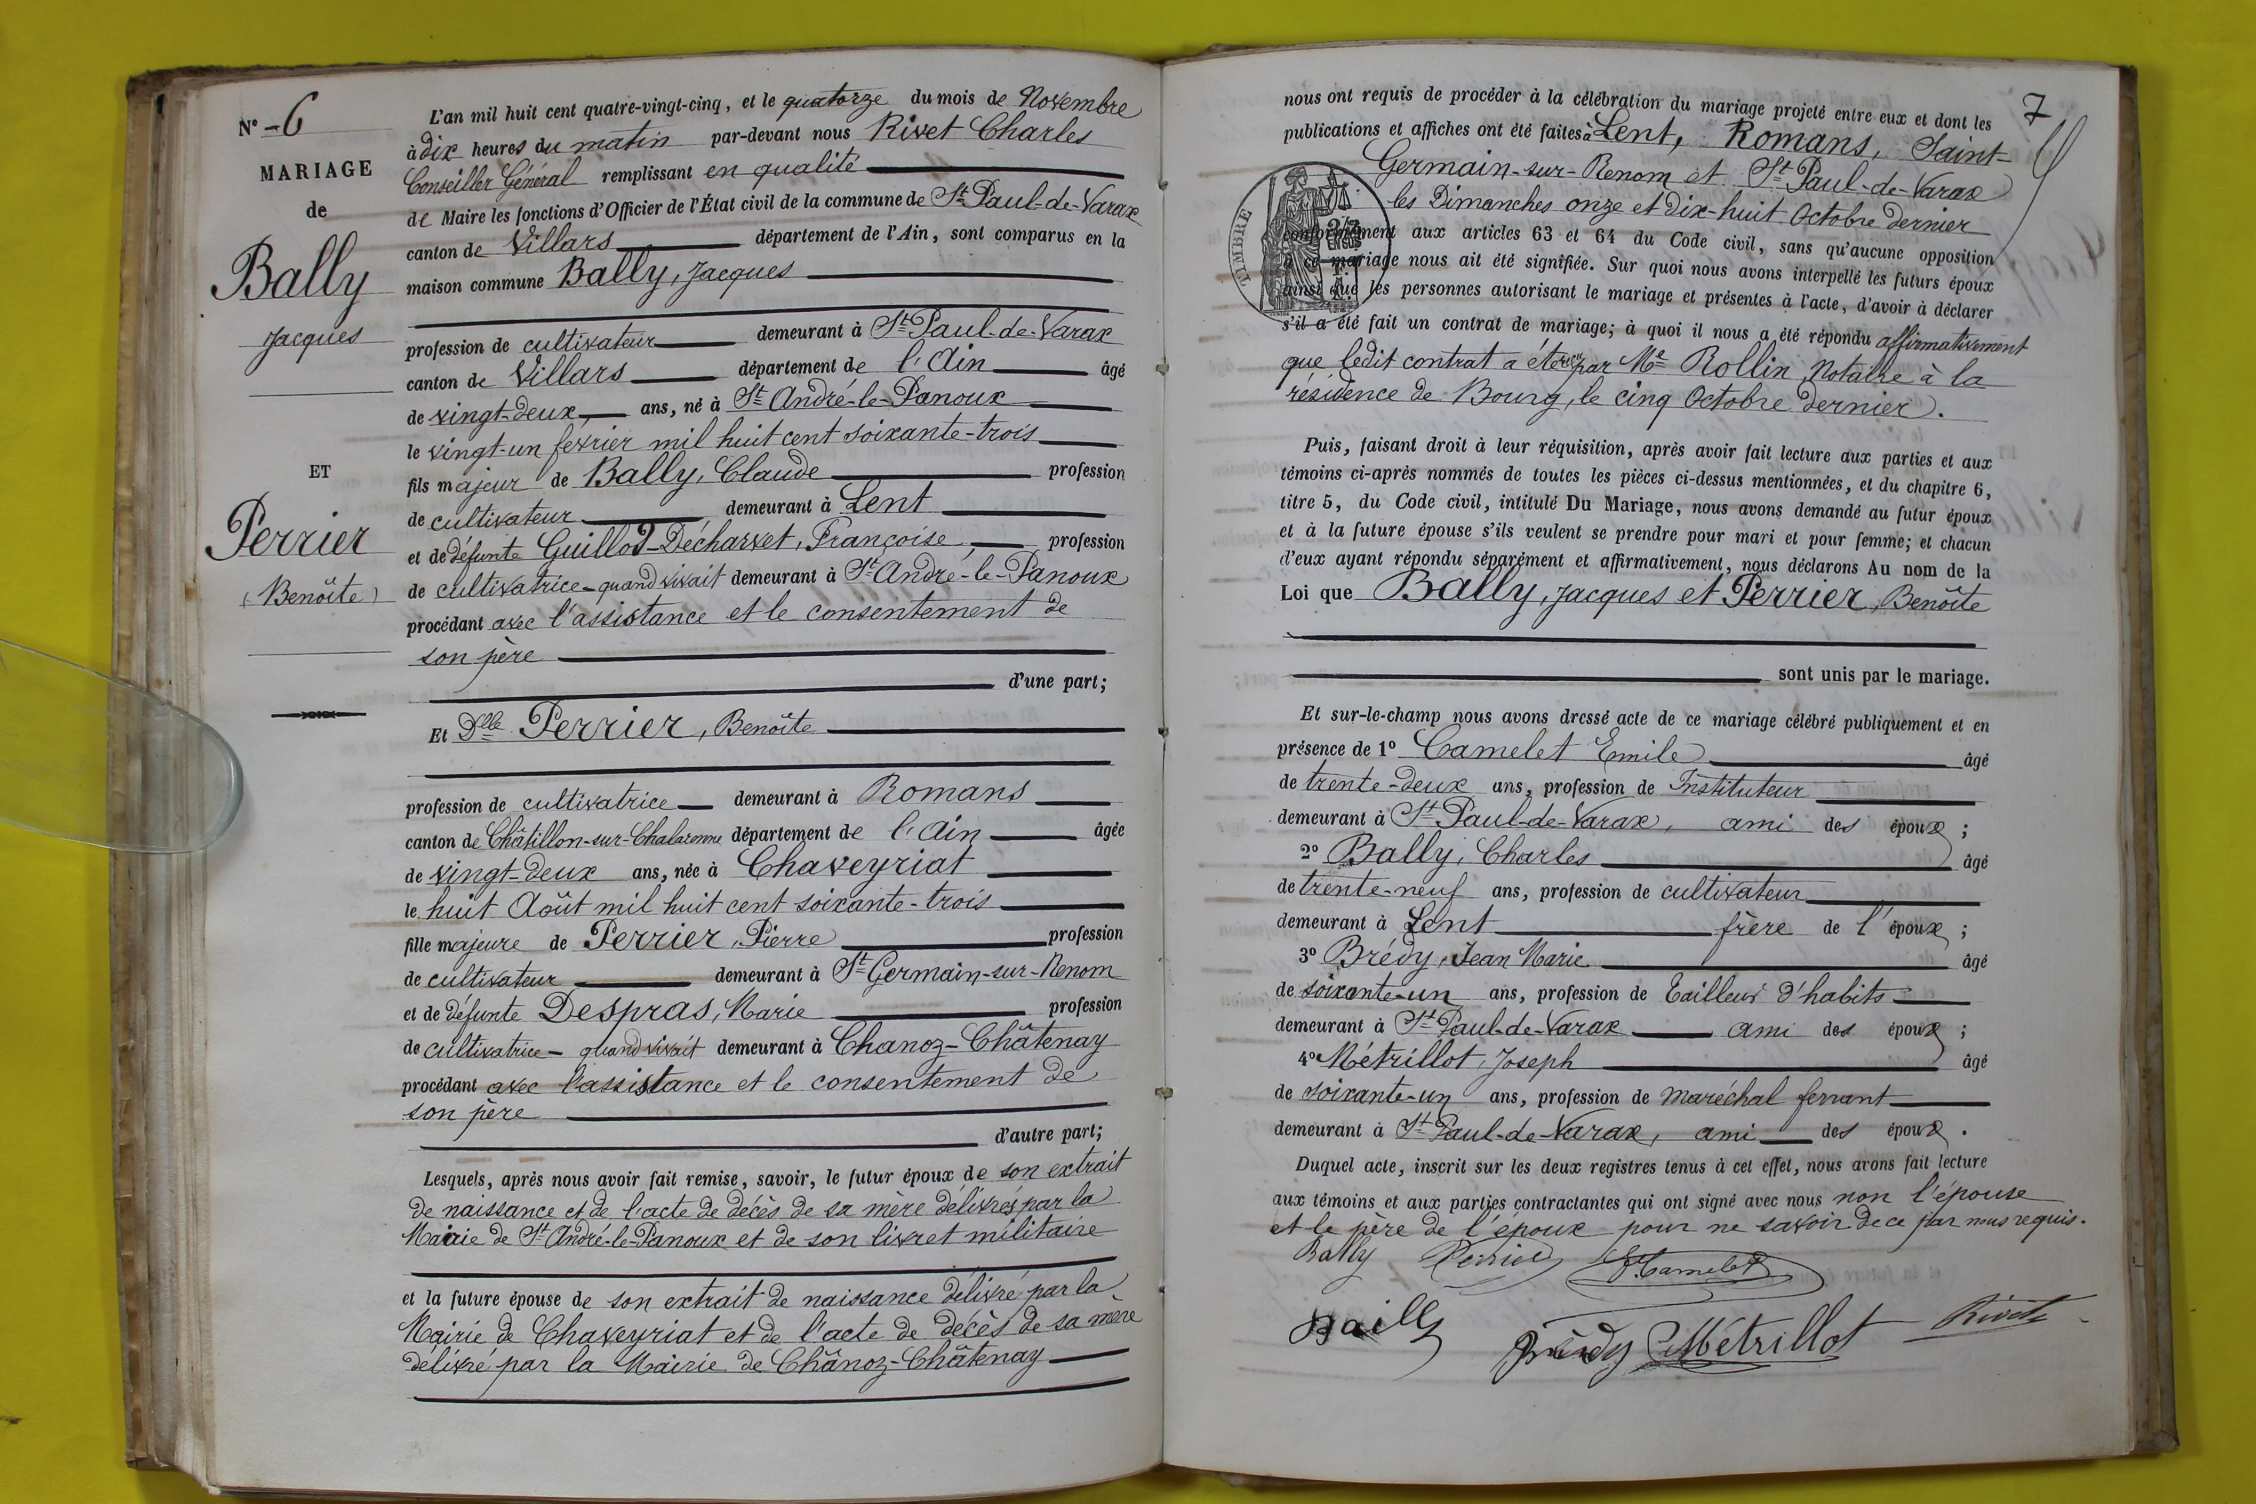 N° 6
MARIAGE
de
Bally
Jacques
ET
Perrier
(Benoîte)
L'an mil huit cent quatre-vingt-cinq, et le quatorze du mois de Novembre
à dix heures du matin par-devant nous Rivet Charles
Conseiller Général remplissant en qualité
de Maire les fonctions d'Officier de l'État civil de la commune de St Paul-de-Varax
canton de Villars département de l'Ain, sont comparus en la
maison commune Bally, Jacques
profession de cultivateur demeurant à St Paul-de-Varax
canton de Villars département de l'Ain âgé
de vingt-deux ans, né à St André-le-Panoux
le vingt-un fevrier mil huit cent soixante-trois
fils majeur de Bally, Claude profession
de cultivateur demeurant à Lent
et de défunte Guillod-Décharvet, Françoise, profession
de cultivatrice-quand vivait demeurant à St André-le-Panoux
procédant avec l'assistance et le consentement de
son père
d'une part;
Et Dlle Perrier, Benoîte
profession de cultivatrice demeurant à Romans
canton de Châtillon-sur-Chalaronne département de l'Ain âgée
de vingt-deux ans, née à Chaveyriat
le huit Août mil huit cent soixante-trois
fille majeure de Perrier, Pierre profession
de cultivateur demeurant à St Germain-sur-Renom
et de défunte Despras, Marie profession
de cultivatrice - quand vivait demeurant à Chanoz-Châtenay
procédant avec l'assistance et le consentement de
son père
d'autre part;
Lesquels, après nous avoir fait remise, savoir, le futur époux de son extrait
de naissance et de l'acte de décès de sa mère délivrés par la
Mairie de St André-le-Panoux et de son livret militaire
et la future épouse de son extrait de naissance délivré par la
Mairie de Chaveyriat et de l'acte de décès de sa mère
délivré par la Mairie de Chânoz-Châtenay
7
nous ont requis de procéder à la célébration du mariage projeté entre eux et dont les
publications et affiches ont été faites à Lent, Romans, Saint-
Germain-sur-Renom et St Paul-de-Varax
les Dimanches onze et dix-huit Octobre dernier
TIMBRE
conformément aux articles 63 et 64 du Code civil, sans qu'aucune opposition
à ce mariage nous ait été signifiée. Sur quoi nous avons interpellé les futurs époux
ainsi que les personnes autorisant le mariage et présentes à l'acte, d'avoir à déclarer
s'il a été fait un contrat de mariage; à quoi il nous a été répondu affirmativement
que ledit contrat a été reçu par Me Rollin, Notaire à la
résidence de Bourg, le cinq Octobre dernier.
Puis, faisant droit à leur réquisition, après avoir fait lecture aux parties et aux
témoins ci-après nommés de toutes les pièces ci-dessus mentionnées, et du chapitre 6,
titre 5, du Code civil, intitulé Du Mariage, nous avons demandé au futur époux
et à la future épouse s'ils veulent se prendre pour mari et pour femme; et chacun
d'eux ayant répondu séparément et affirmativement, nous déclarons Au nom de la
Loi que Bally, Jacques et Perrier, Benoîte
sont unis par le mariage.
Et sur-le-champ nous avons dressé acte de ce mariage célébré publiquement et en
présence de 1° Camelet Emile âgé
de trente-deux ans, profession de Instituteur
demeurant à St Paul-de-Varax, ami des époux;
2° Bally, Charles âgé
de trente-neuf ans, profession de cultivateur
demeurant à Lent frère de l'époux;
3° Brédy, Jean Marie âgé
de soixante-un ans, profession de Tailleur d'habits
demeurant à St Paul-de-Varax ami des époux;
4° Métrillot, Joseph âgé
de soixante-un ans, profession de maréchal ferrant
demeurant à St Paul-de-Varax, ami des époux.
Duquel acte, inscrit sur les deux registres tenus à cet effet, nous avons fait lecture
aux témoins et aux parties contractantes qui ont signé avec nous non l'épouse
et le père de l'époux pour ne savoir de ce par nous requis.
Bally Perrier E. Camelet
Bailly Brédy Métrillot Rivet